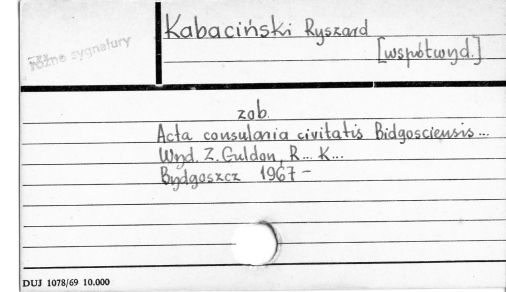 Kabaciński Ryszard
[współwyd.]
różne sygnatury
zob.
Acta consularia civitatis Bidgosciensis...
Wyd. Z. Guldon, R... K...
Bydgoszcz 1967-
DUJ 1078/69 10.000